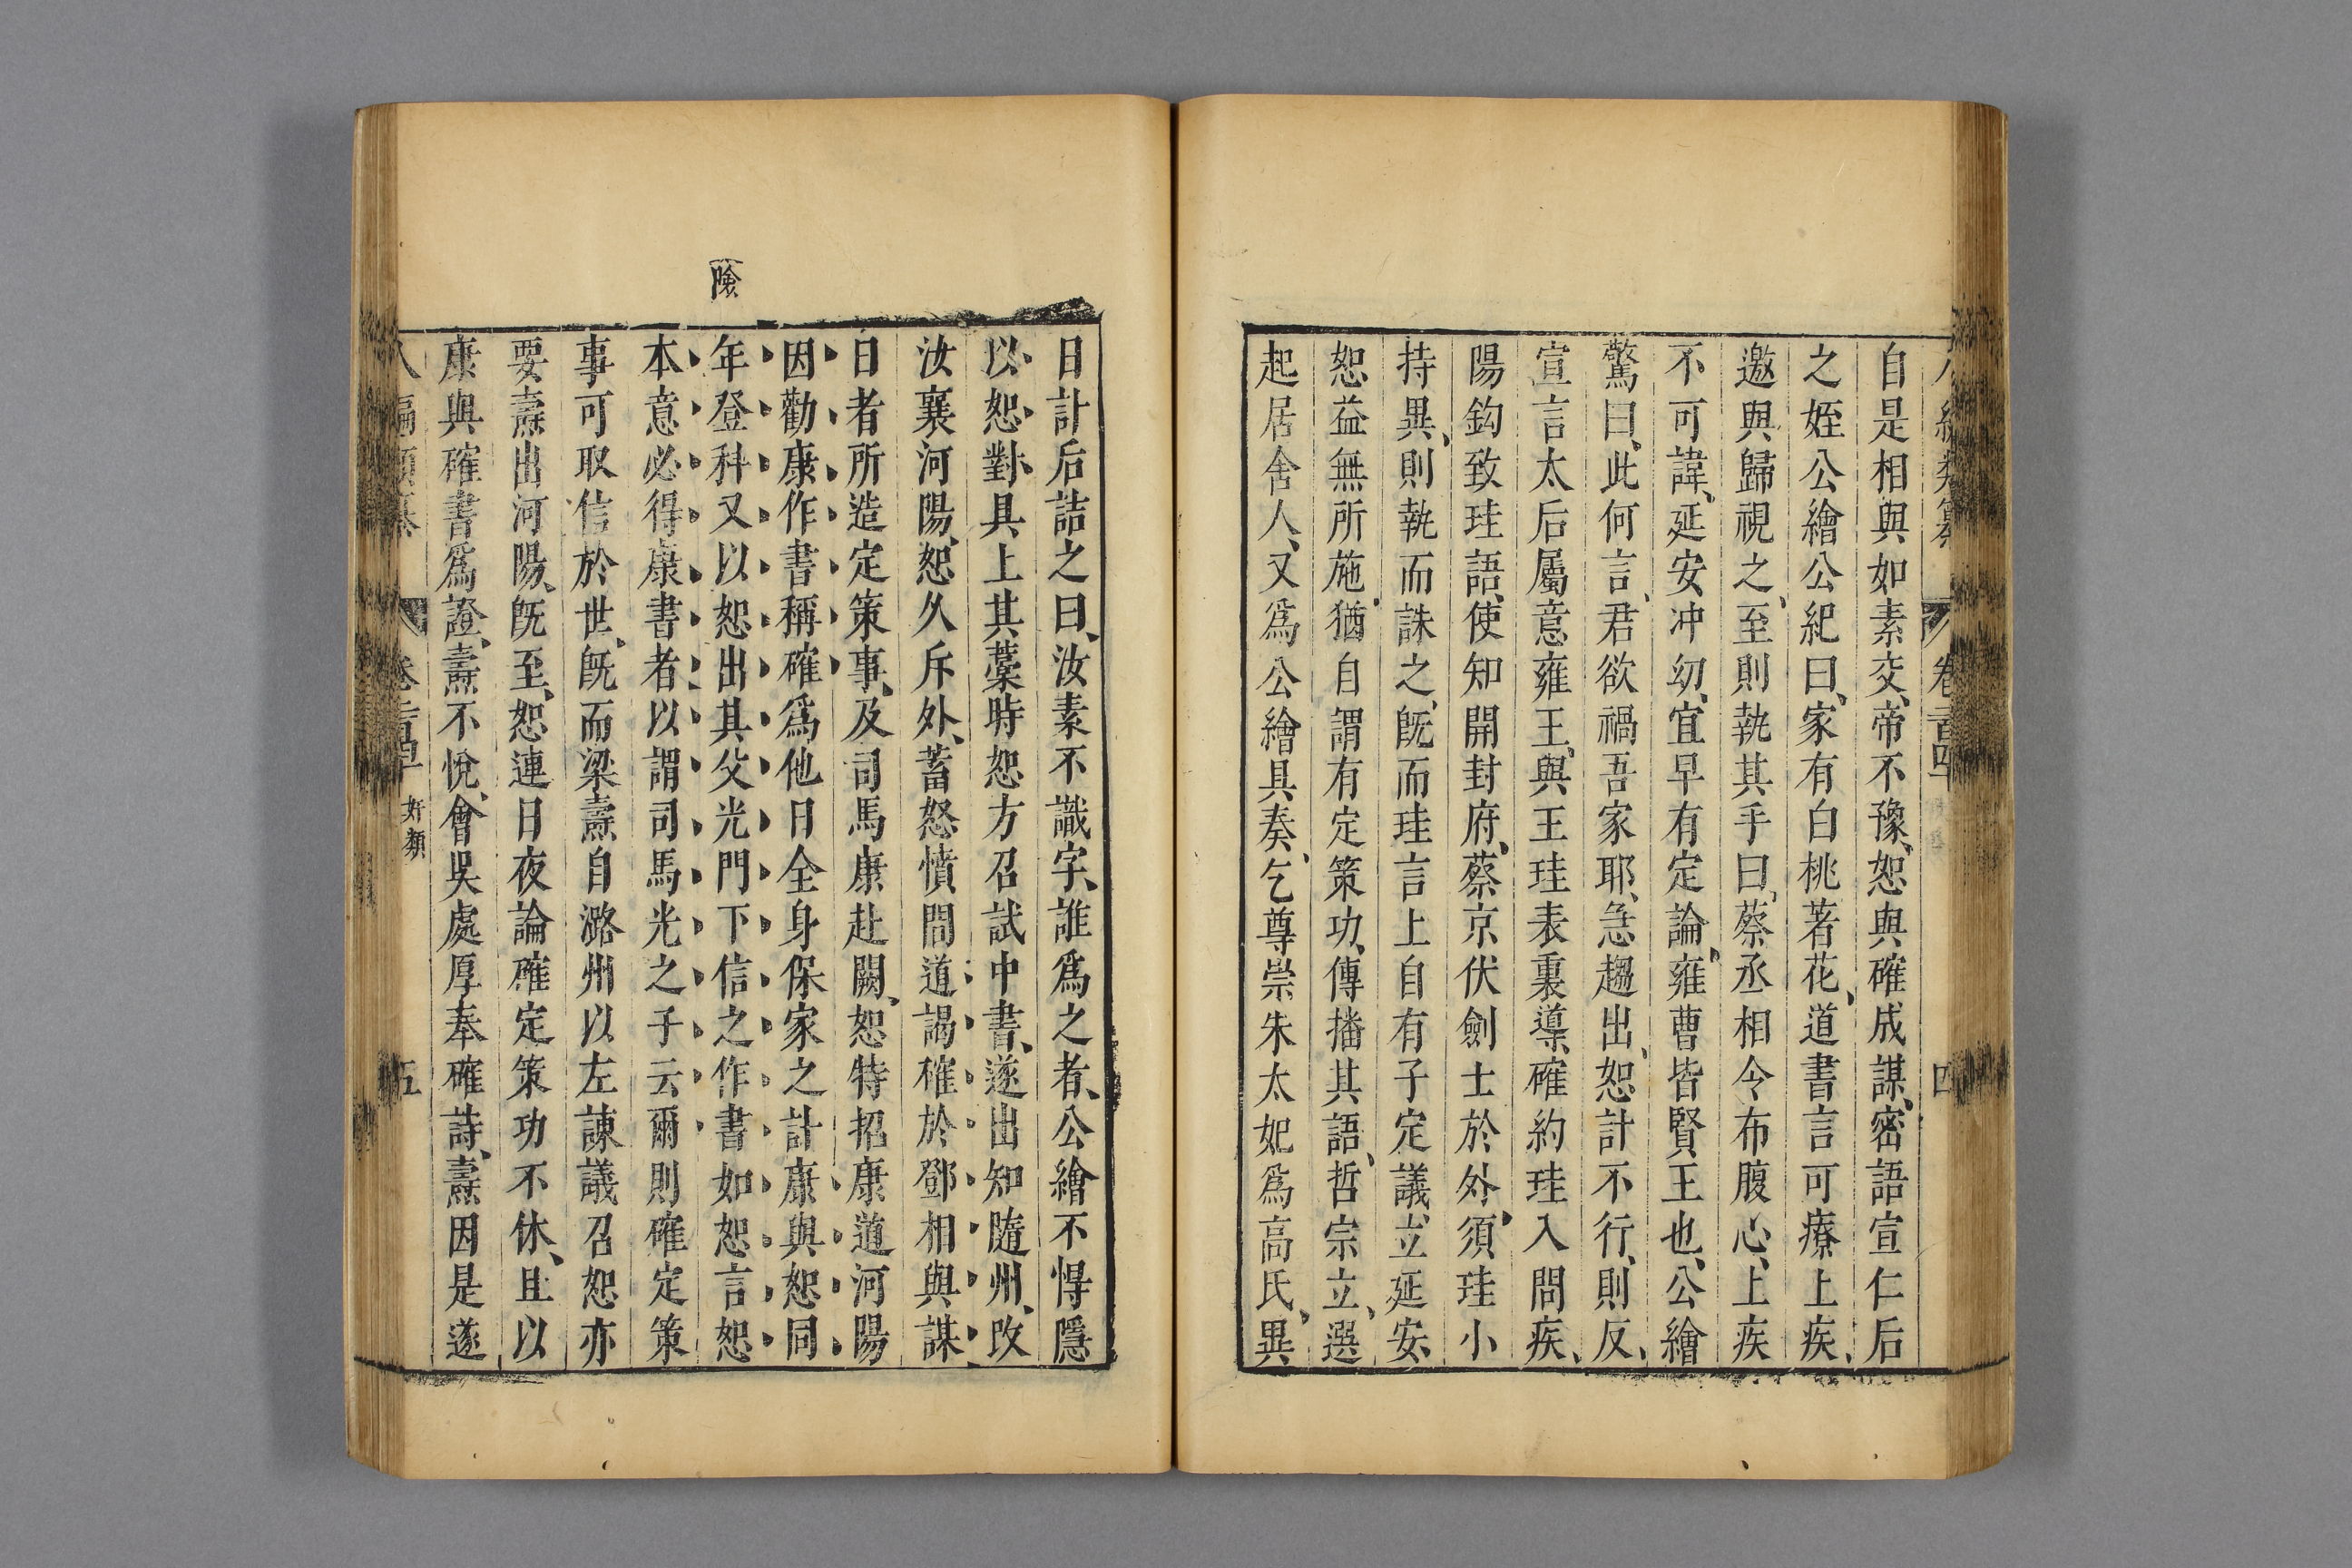 自是相與如素交、帝不豫、恕與確成謀、密語宣仁后
之姪公繪公紀曰、家有白桃著花、道書言可療上疾、
邀與歸視之、至則執其手曰、蔡丞相令布腹心、上疾
不可諱、延安冲幼、宜早有定論、雍曹皆賢王也、公繪
驚曰、此何言、君欲禍吾家耶、急趨出、恕計不行、則反、
宣言太后屬意雍王、與王珪表裏、導確約珪入問疾、
陽鈎致珪語、使知開封府、蔡京伏劍士於外、須珪小
持異、則執而誅之、既而珪言上自有子定議、立延安、
恕益無所施、猶自謂有定策功、傳播其語、哲宗立、選
起居舍人、又爲公繪具奏、乞尊崇朱太妃爲高氏、異
日計后詰之曰、汝素不識字、誰爲之者、公繪不得隱
以恕對、具上其藁時恕方召試中書、遂出知隨州、改
汝襄河陽、恕久斥外、蓄怒憤間道謁確於鄧相與謀
日者所造定策事、及司馬康赴闕、恕特招康道河陽
因勸康作書稱確爲他日全身保家之計康與恕同
年登科又以恕出其父光門下信之作書如恕言恕
本意必得康書者以謂司馬光之子云爾則確定策
事可取信於世、既而梁燾自潞州以左諫議召恕亦
要燾出河陽、既至、恕連日夜論確定策功不休、且以
康與確書爲證、燾不悅、會吳處厚奉確詩、燾因是遂
險
卷
奸類
五
四